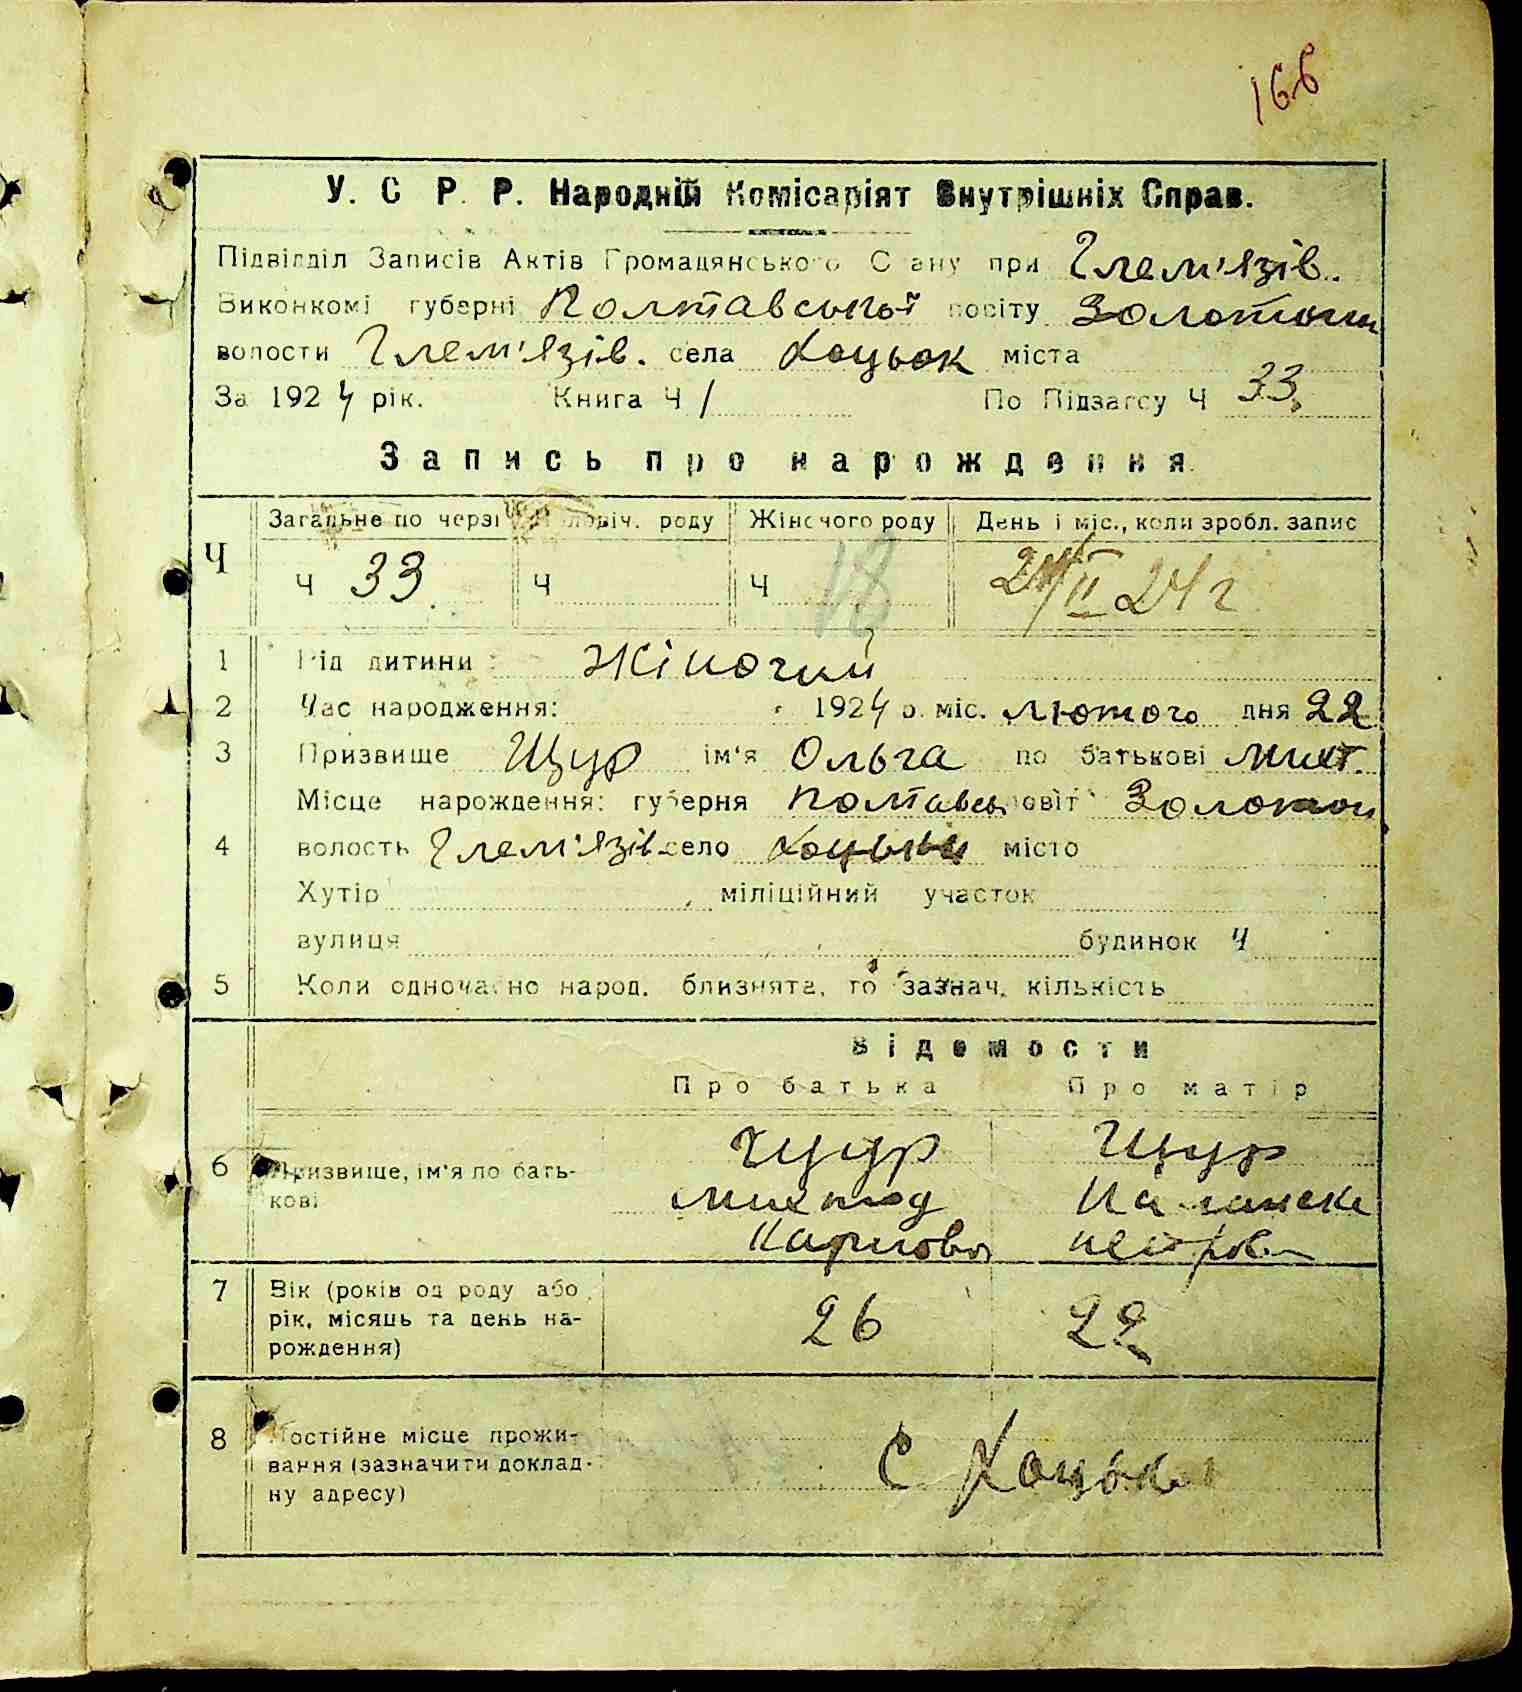 166
У. С Р. Р. Народній Комісаріят Внутрішніх Справ.
Підвідділ Записів Актів Громадянського Стану при Глем'язів.
Виконкомі губерні Полтавської повіту Золотонш
волости Глем'язів. села Коцьок міста
За 1924 рік. Книга Ч 1 По Підзагсу Ч 33
Запись про народження
Ч Загальне по черзі Чоловіч. роду Жіночого роду День і міс., коли зробл. запис
Ч 33 Ч Ч 18 24/II 24 г
1 Рід дитини Жіночий
2 Час народження: 1924 р. міс. лютого дня 22
3 Призвище Щур ім'я Ольга по батькові Мит.
Місце нарождення: губерня Полтавсь повіт Золотон
4 волость Глем'язів село Коцьки місто
Хутір міліційний участок
вулиця будинок Ч
5 Коли одночасно народ. близнята, то зазнач. кількість
Відомости
Про батька Про матір
6 Призвище, ім'я по бать-
кові
Щур Щур
Карпович Петровн
7 Вік (років од роду або
рік, місяць та день на-
рождення)
26 22
8 Постійне місце прожи-
вання (зазначити доклад-
ну адресу)
С Коцьки